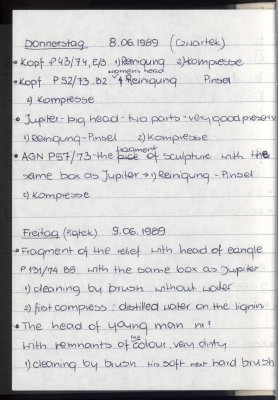 Donnerstag 8.06.1989 (czwartek)
• Kopf P43/74, E/3 1) Reinigung 2) Kompresse
womens head
• Kopf P52/73. B2 1) Reinigung Pinsel
2) Kompresse
• Jupiter - big head - two parts - very good preserv
1) Reinigung - Pinsel 2) Kompresse
fragment
• AGN P57/73 - the piece of sculpture with the
same box as Jupiter → 1) Reinigung - Pinsel
2) Kompresse
Freitag (Piątek) 9.06.1989
• Fragment of the relief with head of eangle
P131/74 B5 with the same box as Jupiter
1) cleaning by brush without water
2) first compress : distilled water on the lignin
• The head of young man
the
with remnants of colour, very dirty
1) cleaning by brush his soft next hard brush